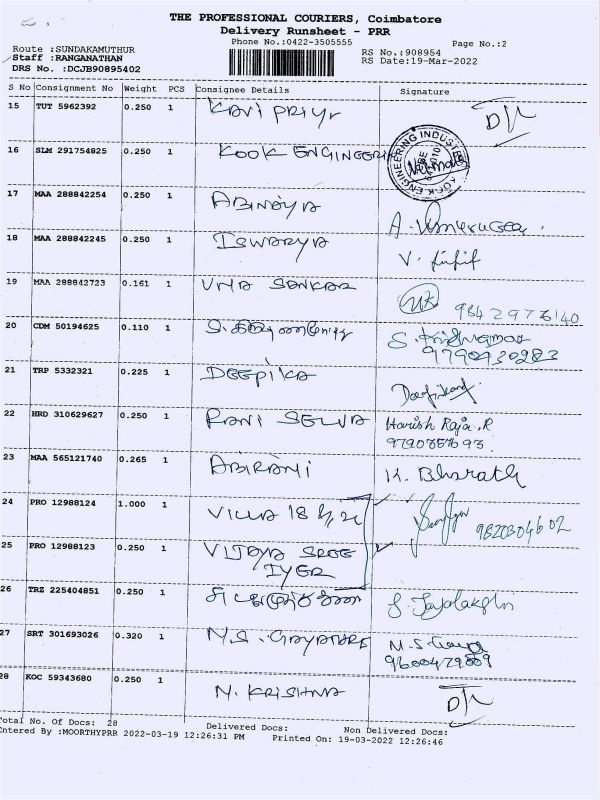 THE PROFESSIONAL COURIERS, Coimbatore
Delivery Runsheet - PRR
Phone No.:0422-3505555
Page No.:2
Route :SUNDAKAMUTHUR
Staff :RANGANATHAN
DRS No. :DCJB90895402
RS No.:908954
RS Date:19-Mar-2022
S No Consignment No Weight PCS Consignee Details Signature
15 TUT 5962392 0.250 1 KAVI PRIYA
16 SLM 291754825 0.250 1 KOOK ENGINEERI
17 MAA 288842254 0.250 1 ABINAYA A.
18 MAA 288842245 0.250 1 ISWARYA V.
19 MAA 288842723 0.161 1 UMA SANKAR 9842976140
20 CDM 50194625 0.110 1 S.
9790930283
21 TRP 5332321 0.225 1 DEEPIKA
22 HRD 310629627 0.250 1 RANI SELVA Harish Raja.R
23 MAA 565121740 0.265 1 ABIRAMI K. Bharath
24 PRO 12988124 1.000 1 VILLA 18 9820304602
25 PRO 12988123 0.250 1 VIJAYA SREE
IYER
26 TRZ 225404851 0.250 1
27 SRT 301693026 0.320 1 N.S. GAYATHRI M.S
9600479809
28 KOC 59343680 0.250 1 N. KRISHNA
Total No. Of Docs: 28 Delivered Docs: Non Delivered Docs:
Entered By :MOORTHYPRR 2022-03-19 12:26:31 PM Printed On: 19-03-2022 12:26:46